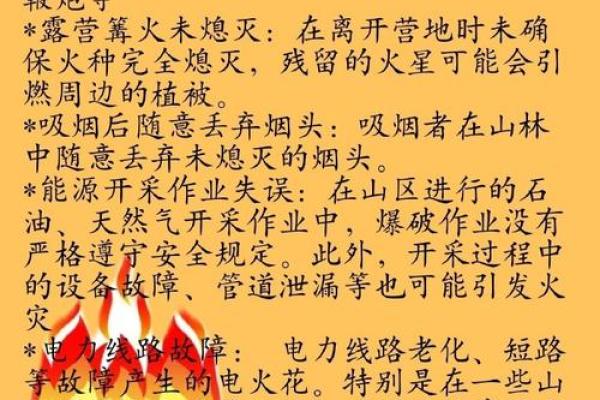 鞭炮等
*露营篝火未熄灭：在离开营地时未确
保火种完全熄灭，残留的火星可能会引
燃周边的植被。
*吸烟后随意丢弃烟头：吸烟者在山林
中随意丢弃未熄灭的烟头。
*能源开采作业失误：在山区进行的石
油、天然气开采作业中，爆破作业没有
严格遵守安全规定。此外，开采过程中
的设备故障、管道泄漏等也可能引发火
灾
*电力线路故障： 电力线路老化、短路
等故障产生的电火花。特别是在一些山